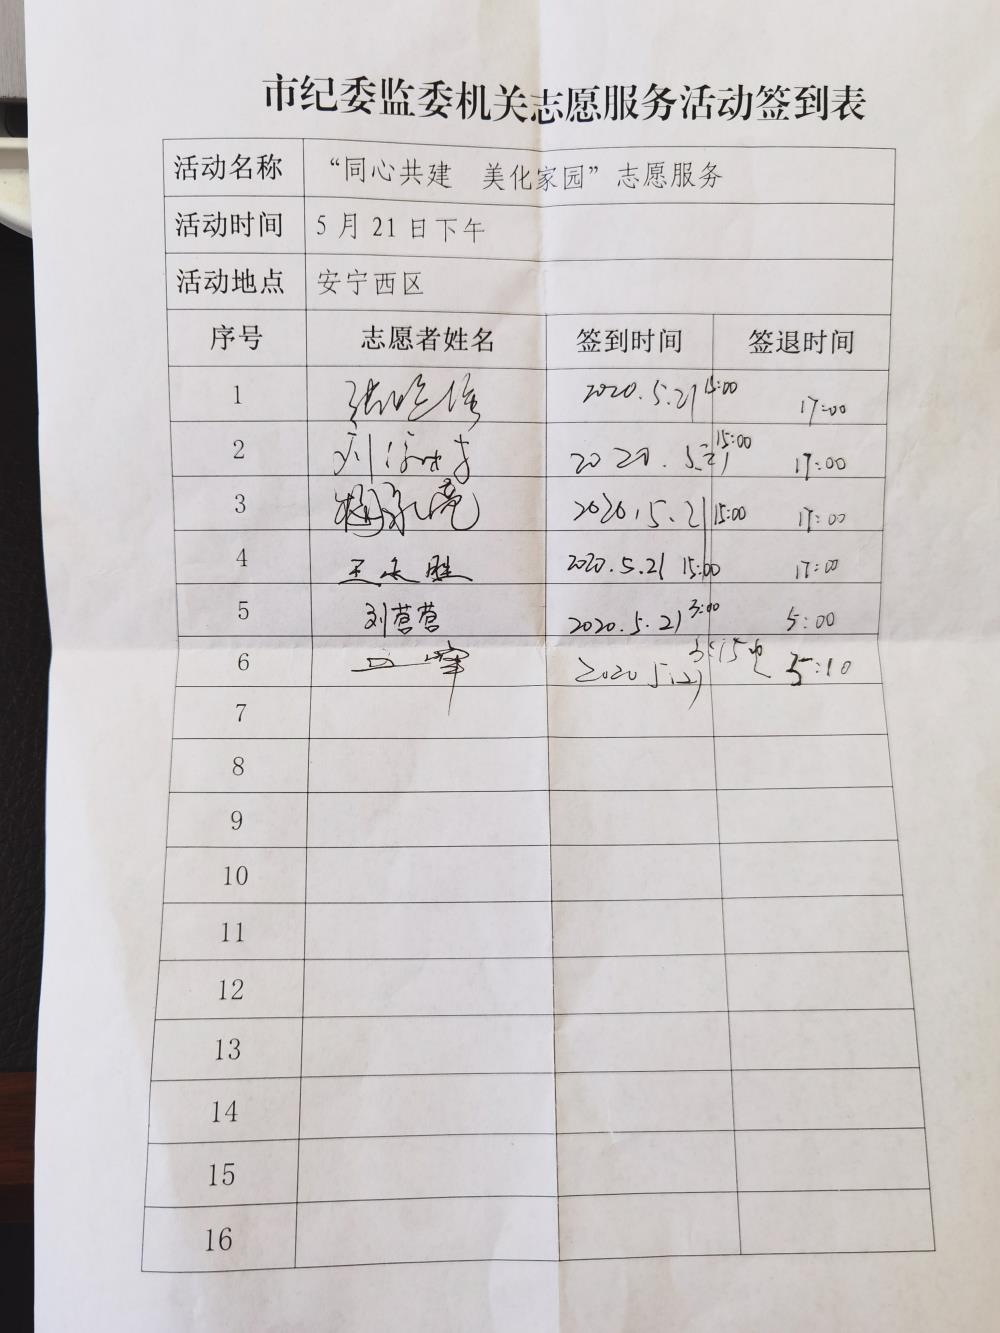 市纪委监委机关志愿服务活动签到表
活动名称 “同心共建 美化家园”志愿服务
活动时间 5月21日下午
活动地点 安宁西区
序号 志愿者姓名 签到时间 签退时间
1 2020.5.21 15:00 17:00
2 刘 2020.5.21 15:00 17:00
3 杨永亮 2020.5.21 15:00 17:00
4 王 胜 2020.5.21 15:00 17:00
5 刘营营 2020.5.21 3:00 5:00
6 2020 5.21 3:15 5:10
7
8
9
10
11
12
13
14
15
16